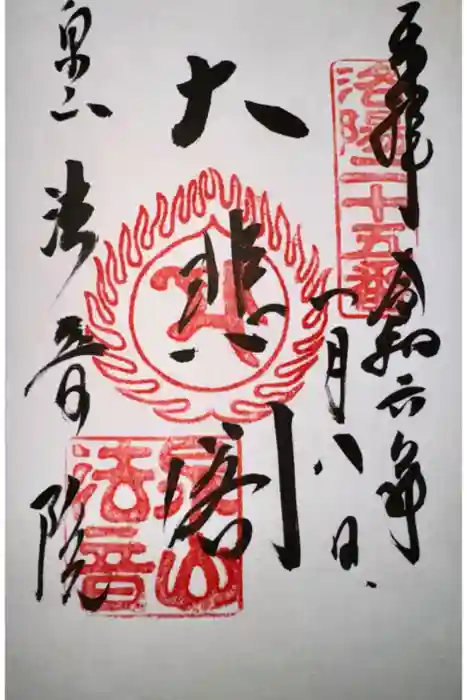 奉拝 令和六年
一月八日
洛陽二十五番
大悲閣
泉山 法音院
泉山
法音